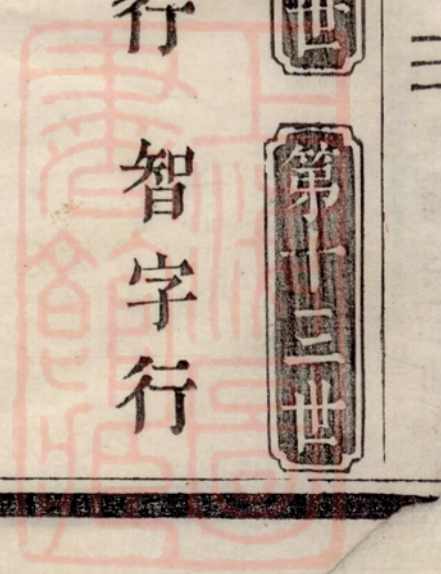 世
第十三世
行
智字行